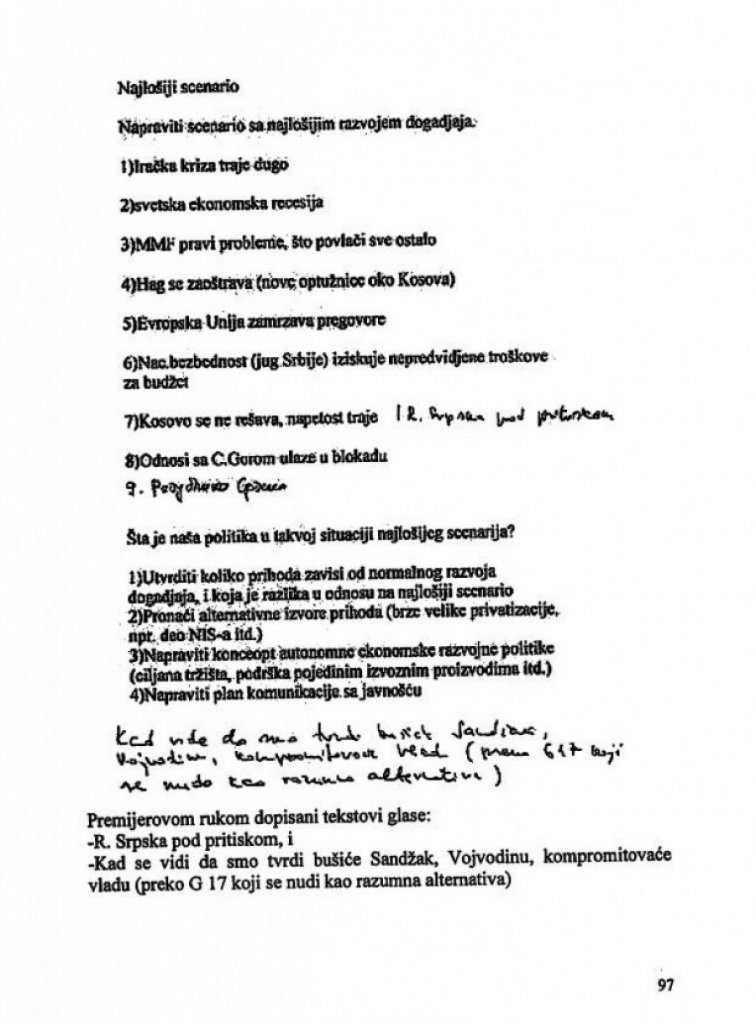 Najlošiji scenario
Napraviti scenario sa najlošijim razvojem dogadjaja.
1)Iračka kriza traje dugo
2)svetska ekonomska recesija
3)MMF pravi probleme, što povlači sve ostalo
4)Hag se zaoštrava (nove optužnice oko Kosova)
5)Evropska Unija zamrzava pregovore
6)Nac.bezbednost (jug Srbije) iziskuje nepredvidjene troškove
za budžet
7)Kosovo se ne rešava, napetost traje I R. Srpska pod pritiskom
8)Odnosi sa C.Gorom ulaze u blokadu
9.
Šta je naša politika u takvoj situaciji najlošijeg scenarija?
1)Utvrditi koliko prihoda zavisi od normalnog razvoja
dogadjaja, i koja je razlika u odnosu na najlošiji scenario
2)Pronaći alternativne izvore prihoda (brze velike privatizacije,
npr. deo NIS-a itd.)
3)Napraviti koncept autonomne ekonomske razvojne politike
(ciljana tržišta, podrška pojedinim izvoznim proizvodima itd.)
4)Napraviti plan komunikacije sa javnošću
Kad vide da smo tvrdi bušiće Sandžak,
Vojvodinu, kompromitovaće vladu (preko G 17 koji
se nudi kao razumna alternativa)
Premijerovom rukom dopisani tekstovi glase:
-R. Srpska pod pritiskom, i
-Kad se vidi da smo tvrdi bušiće Sandžak, Vojvodinu, kompromitovaće
vladu (preko G 17 koji se nudi kao razumna alternativa)
97